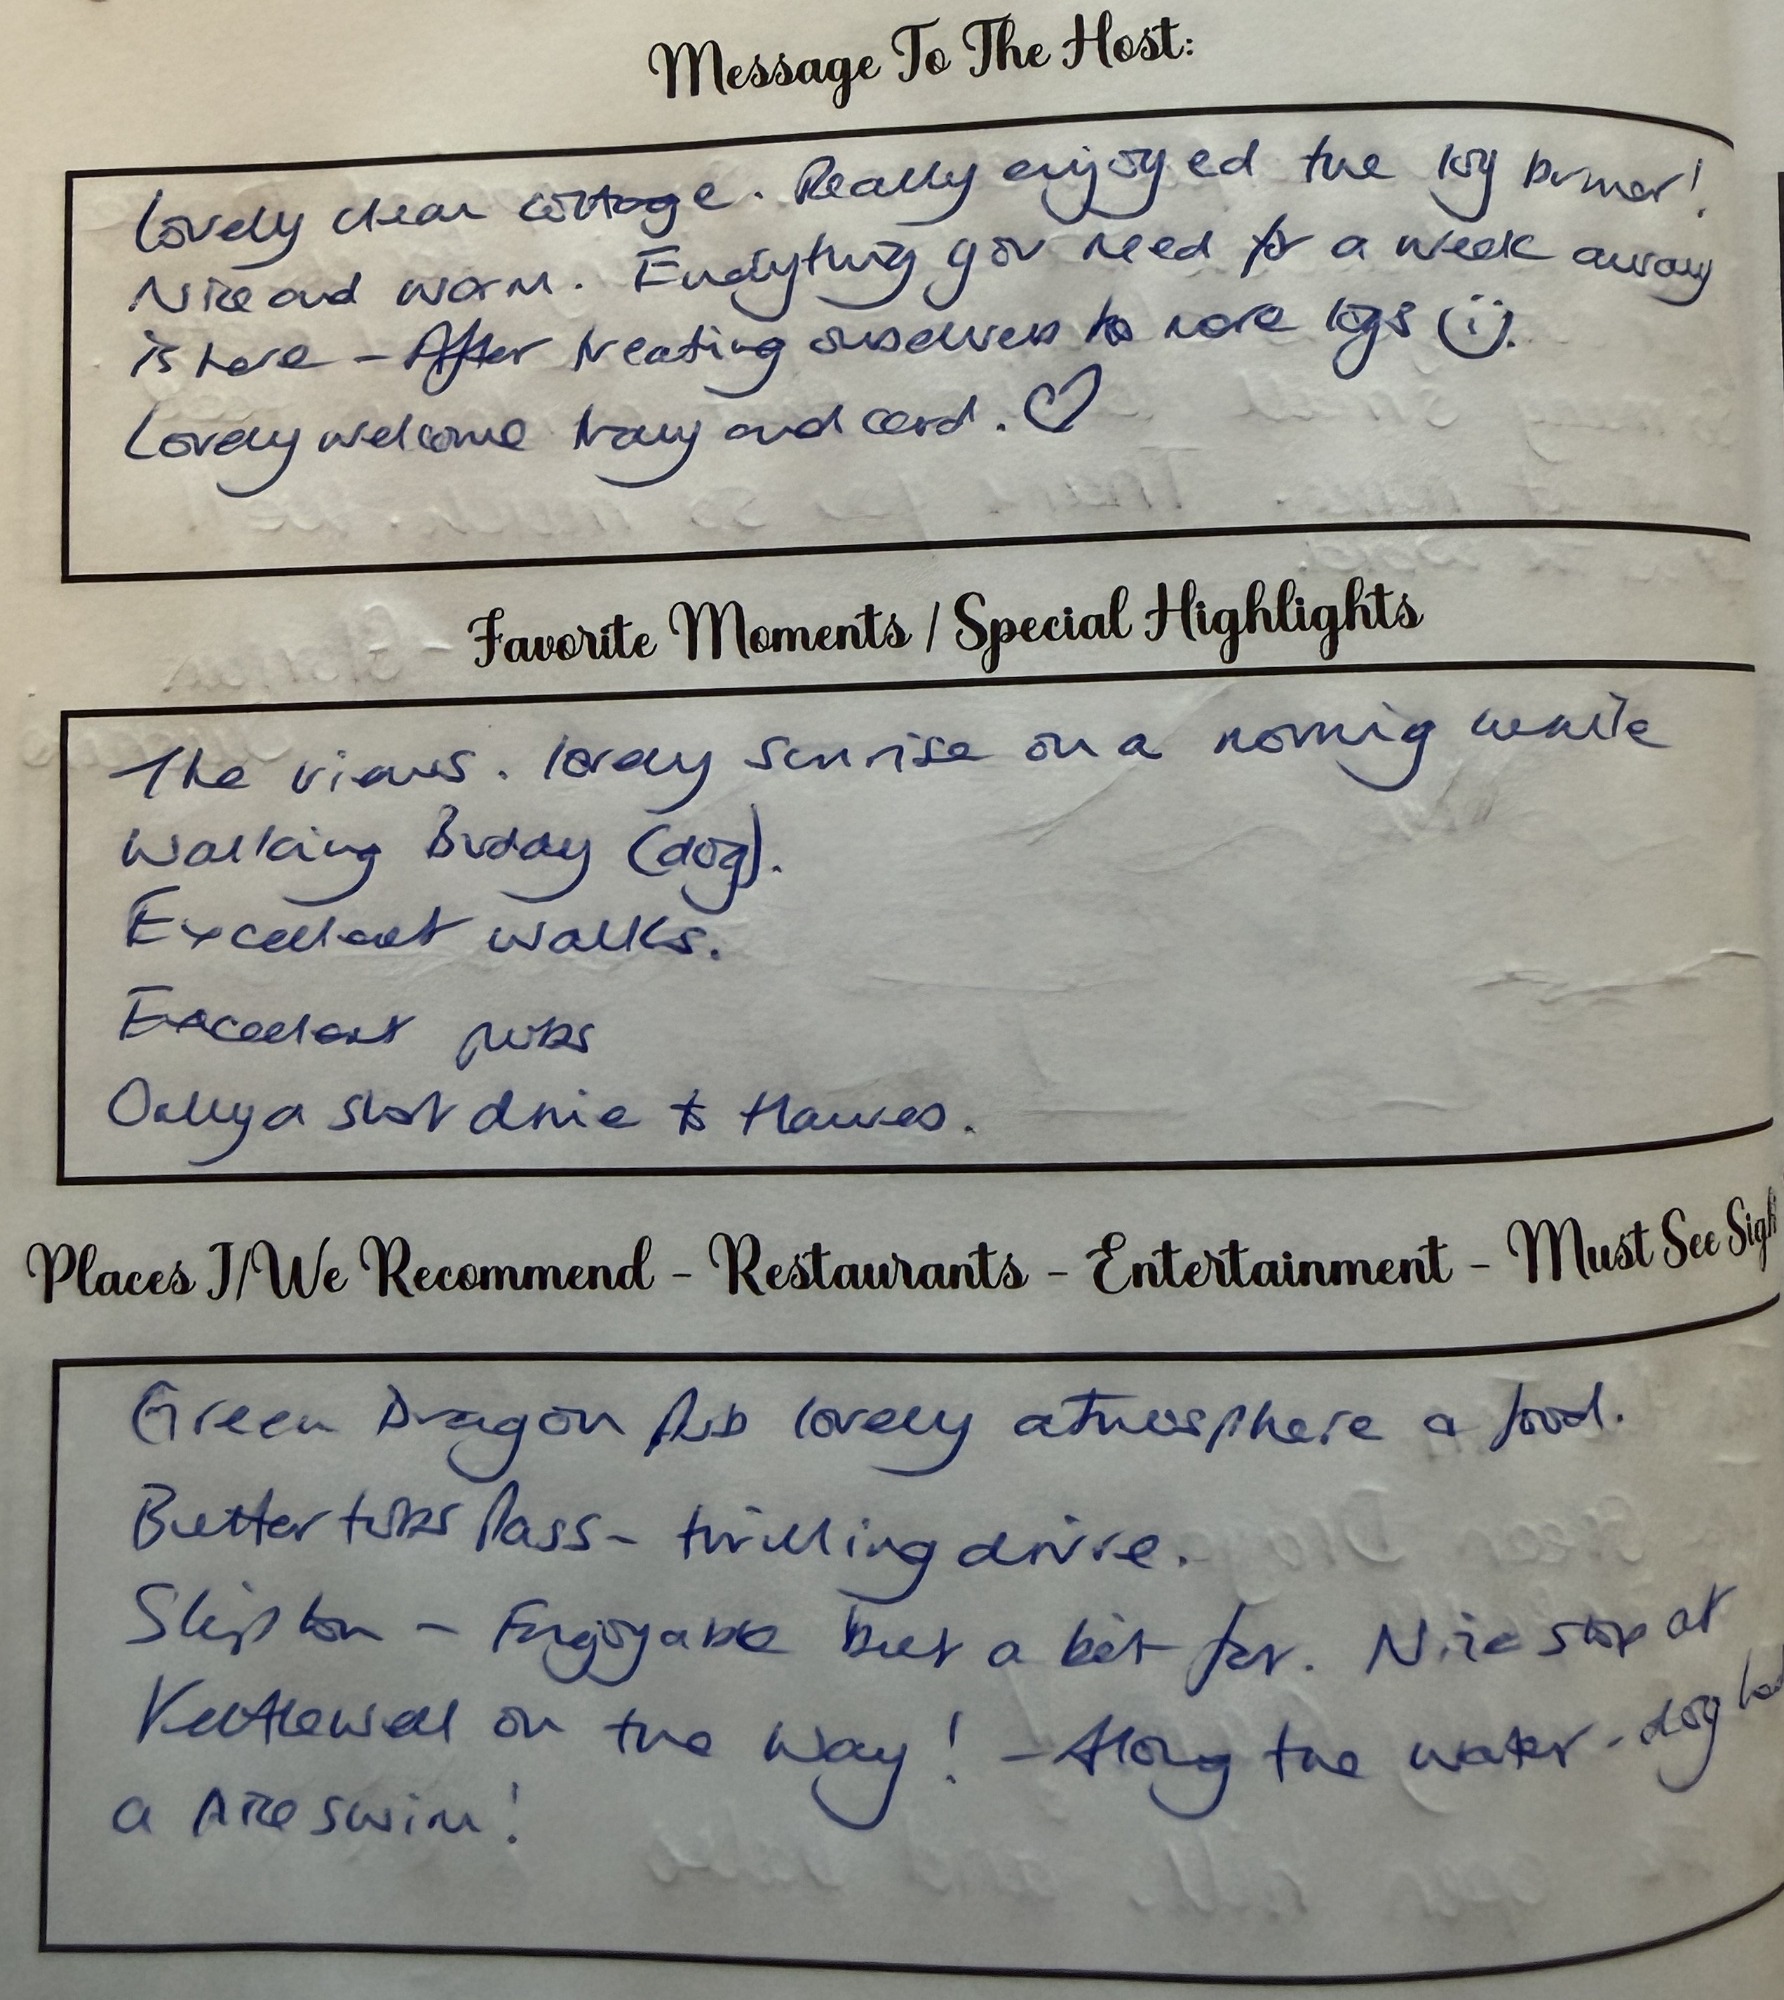 Message To The Host:
Lovely clean cottage. Really enjoyed the log burner!
Nice and warm. Everything you need for a week away
is here - After treating ourselves to more logs (ü).
Lovely welcome tray and card. ♡
Favorite Moments / Special Highlights
The views. lovely sunrise on a morning while
Walking Buddy (dog).
Excellent walks.
Excellent pubs
Only a short drive to Hawes.
Places I/We Recommend - Restaurants - Entertainment - Must See Sigh
Green Dragon Pub lovely atmosphere & food.
Buttertubs Pass - thrilling drive.
Skipton - Enjoyable but a bit far. Nice stop at
Kettlewell on the way! - Along the water - dog
a nice swim!